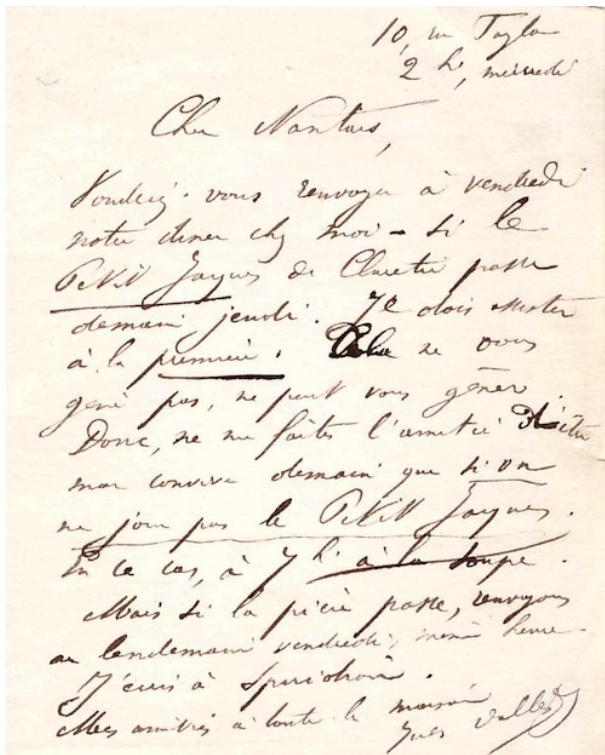 10, rue Taylor
2 h, mercredi
Cher Nantais,
Voudriez-vous renvoyer à vendredi
notre diner chez moi - si le
Petit Jacques de Claretie passe
demain, jeudi. Je dois assister
à la première. Cela ne vous
gêne pas, ne peut vous gêner.
Donc, ne me faites l'amitié d'être
mon convive demain que si on
ne joue pas le Petit Jacques.
En ce cas, à 7 h. à la soupe.
Mais si la pièce passe, renvoyons
au lendemain vendredi, même heure
J'écris à
Mes amitiés à toute la maison
Jules Vallès